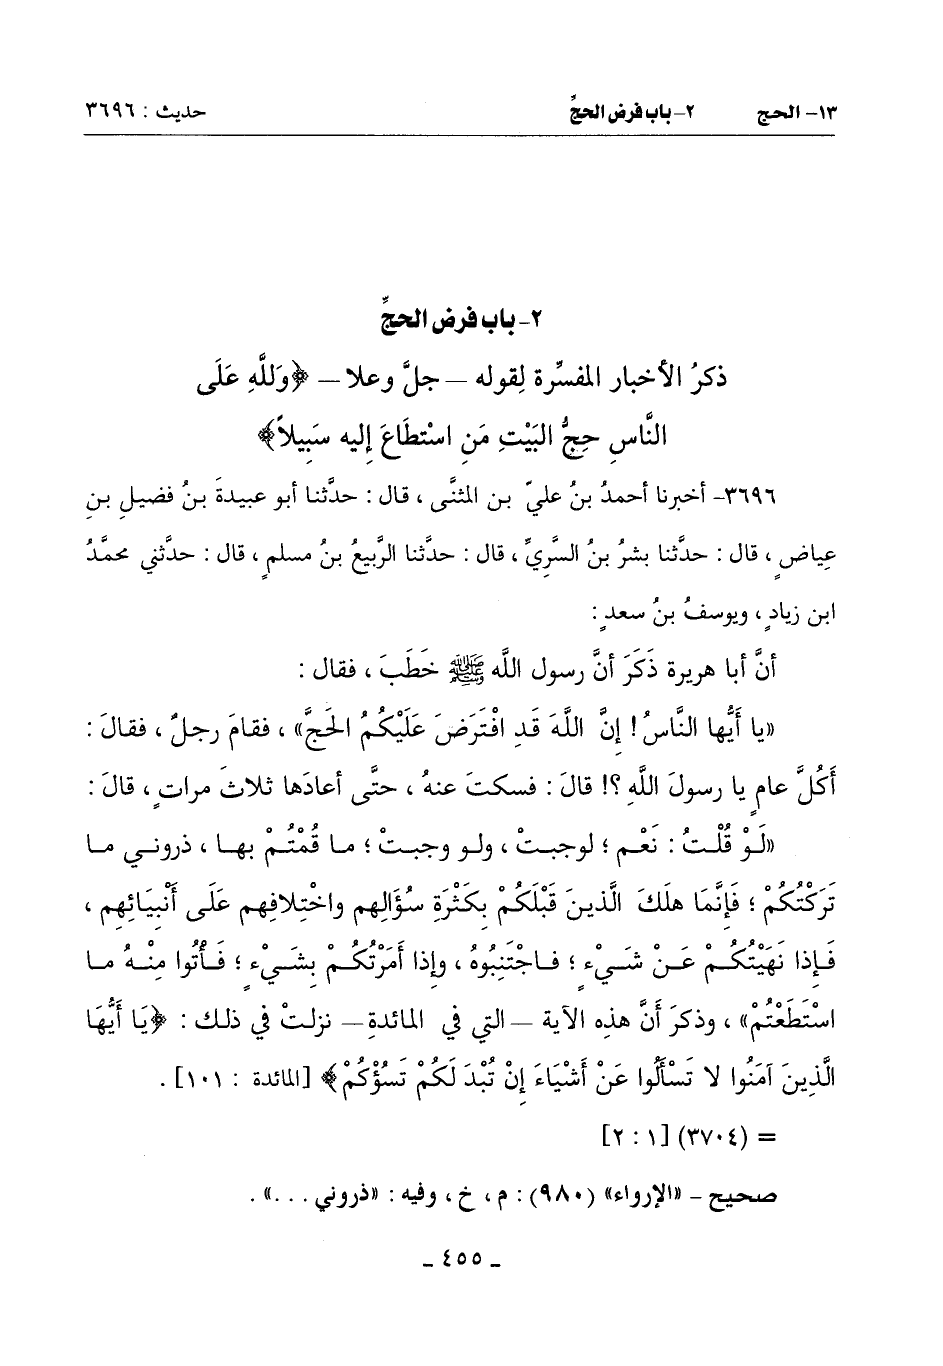 ١٣- الحج ٢- باب فرض الحجِّ حديث : ٣٦٩٦
٢- باب فرض الحجِّ
ذكرُ الأخبار المفسِّرة لِقوله – جلَّ وعلا – ﴿وَللَّهِ عَلَى
النَّاسِ حِجُّ البَيْتِ مَنِ اسْتطَاعَ إِليه سَبِيلاً﴾
٣٦٩٦- أخبرنا أحمدُ بنُ عليّ بن المثنَّى ، قال : حدَّثنا أبو عبيدةَ بنُ فضيلِ بنِ
عِياضٍ ، قال : حدَّثنا بشرُ بنُ السَّريِّ ، قال : حدَّثنا الرَّبيعُ بنُ مسلمٍ ، قال : حدَّثني محمَّدُ
ابن زيادٍ ، ويوسفُ بنُ سعدٍ :
أنَّ أبا هريرة ذَكَرَ أنَّ رسول اللَّه ﷺ خَطَبَ ، فقال :
«يا أَيُّها النَّاسُ! إِنَّ اللَّهَ قَدِ افْتَرَضَ عَلَيْكُمُ الحَجَّ» ، فقامَ رجلٌ ، فقالَ :
أَكُلَّ عامٍ يا رسولَ اللَّهِ ؟! قالَ : فسكتَ عنهُ ، حتَّى أعادَها ثلاثَ مراتٍ ، قالَ :
«لَوْ قُلْتُ : نَعْم ؛ لوجبتْ ، ولو وجبتْ ؛ ما قُمْتُمْ بها ، ذروني ما
تَرَكْتُكُمْ ؛ فَإِنَّمَا هلَكَ الَّذينَ قَبْلَكُمْ بِكَثْرَةِ سُؤَالِهِم واخْتِلافِهِم عَلَى أَنْبِيَائِهِم ،
فَإِذا نَهَيْتُكُمْ عَنْ شَيْءٍ ؛ فاجْتَنِبُوهُ ، وإِذا أَمَرْتُكُمْ بِشَيْءٍ ؛ فَأْتُوا مِنْهُ ما
اسْتَطَعْتُمْ» ، وذكرَ أنَّ هذِه الآية – التي في المائدةِ – نزلتْ في ذلك : ﴿يَا أَيُّهَا
الَّذِينَ آمَنُوا لا تَسْأَلُوا عَنْ أَشْيَاءَ إِنْ تُبْدَ لَكُمْ تَسُؤْكُمْ﴾ [المائدة : ١٠١] .
= (٣٧٠٤) [١ : ٢]
صحيح - «الإرواء» (٩٨٠) : م ، خ ، وفيه : «ذروني ...» .
_ ٤٥٥ _